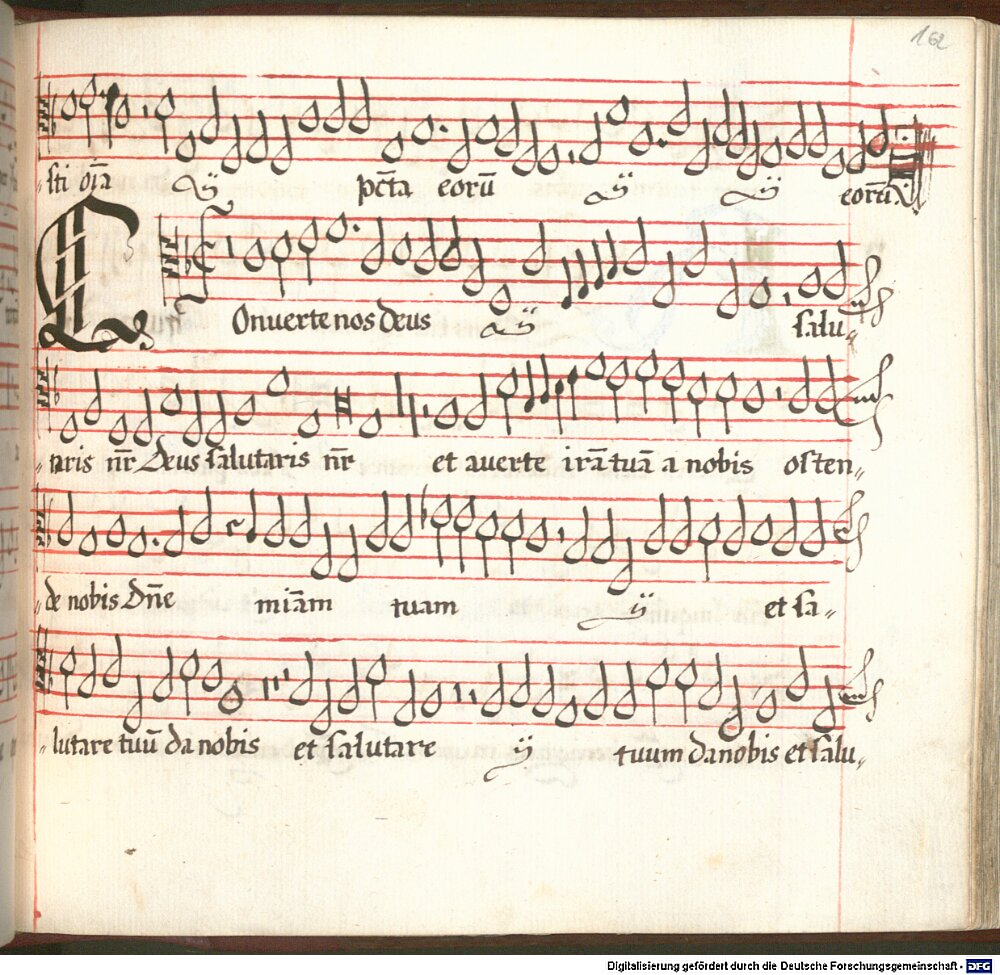 162
„sti oĩa ij pc̃ta eorũ ij ij eorũ
Conuerte nos deus ij salu„
„taris nr̃ Deus salutaris nr̃ et auerte irã tuã a nobis osten„
„de nobis Dñe miãm tuam ij et sa„
„lutare tuũ da nobis et salutare ij tuum da nobis et salu„
Digitalisierung gefördert durch die Deutsche Forschungsgemeinschaft - DFG